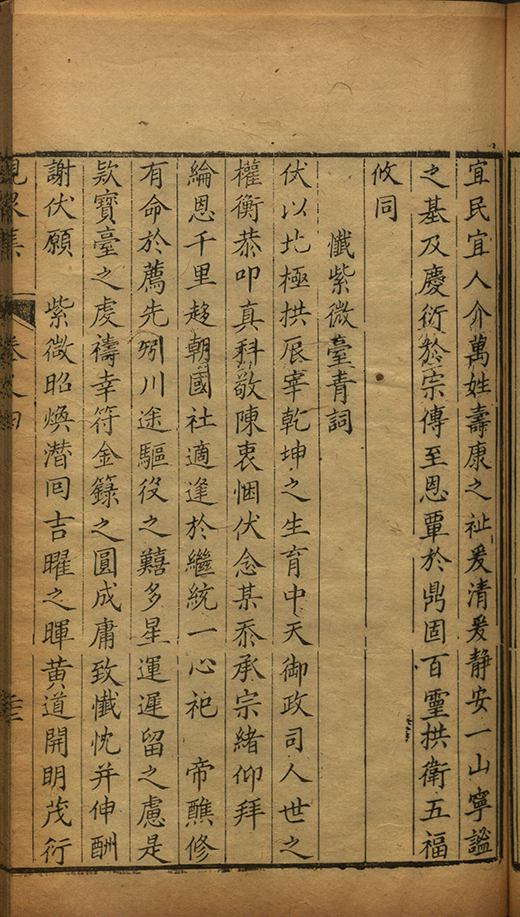 宜民宜人介萬姓壽康之祉爰清爰静安一山寧謐
之基及慶衍於宗傳至恩覃於鼎固百靈拱衛五福
攸同
懺紫微臺青詞
伏以北極拱辰宰乾坤之生育中天御政司人世之
權衡恭叩真科敬陳衷悃伏念某忝承宗緒仰拜
綸恩千里趍朝國社適逢於繼統一心祀 帝醮修
有命於薦先矧川途驅役之囏多星運遲留之慮是
欵寶臺之虔禱幸符金籙之圓成庸致懺忱并伸酬
謝伏願 紫微昭煥潛囘吉曜之暉黄道開明茂衍
峴泉集 卷之四